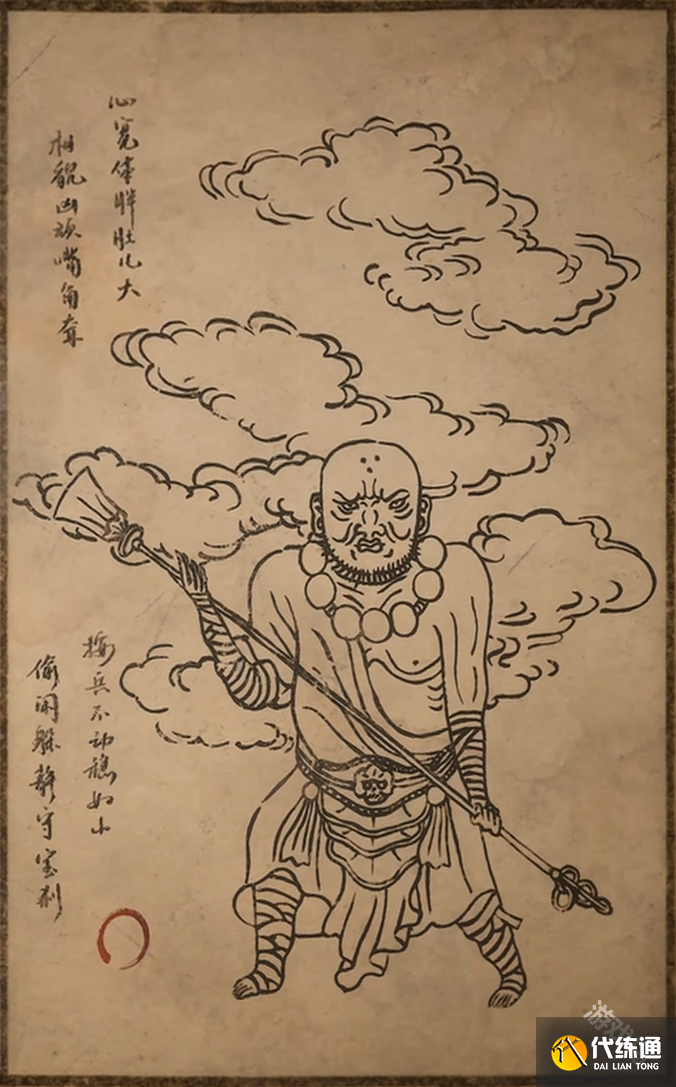 心宽体胖肚儿大
相貌凶顽嘴角耷
按兵不动稳如山
偷闲躲静守宝刹
游戏
代练通
DAI LIAN TONG